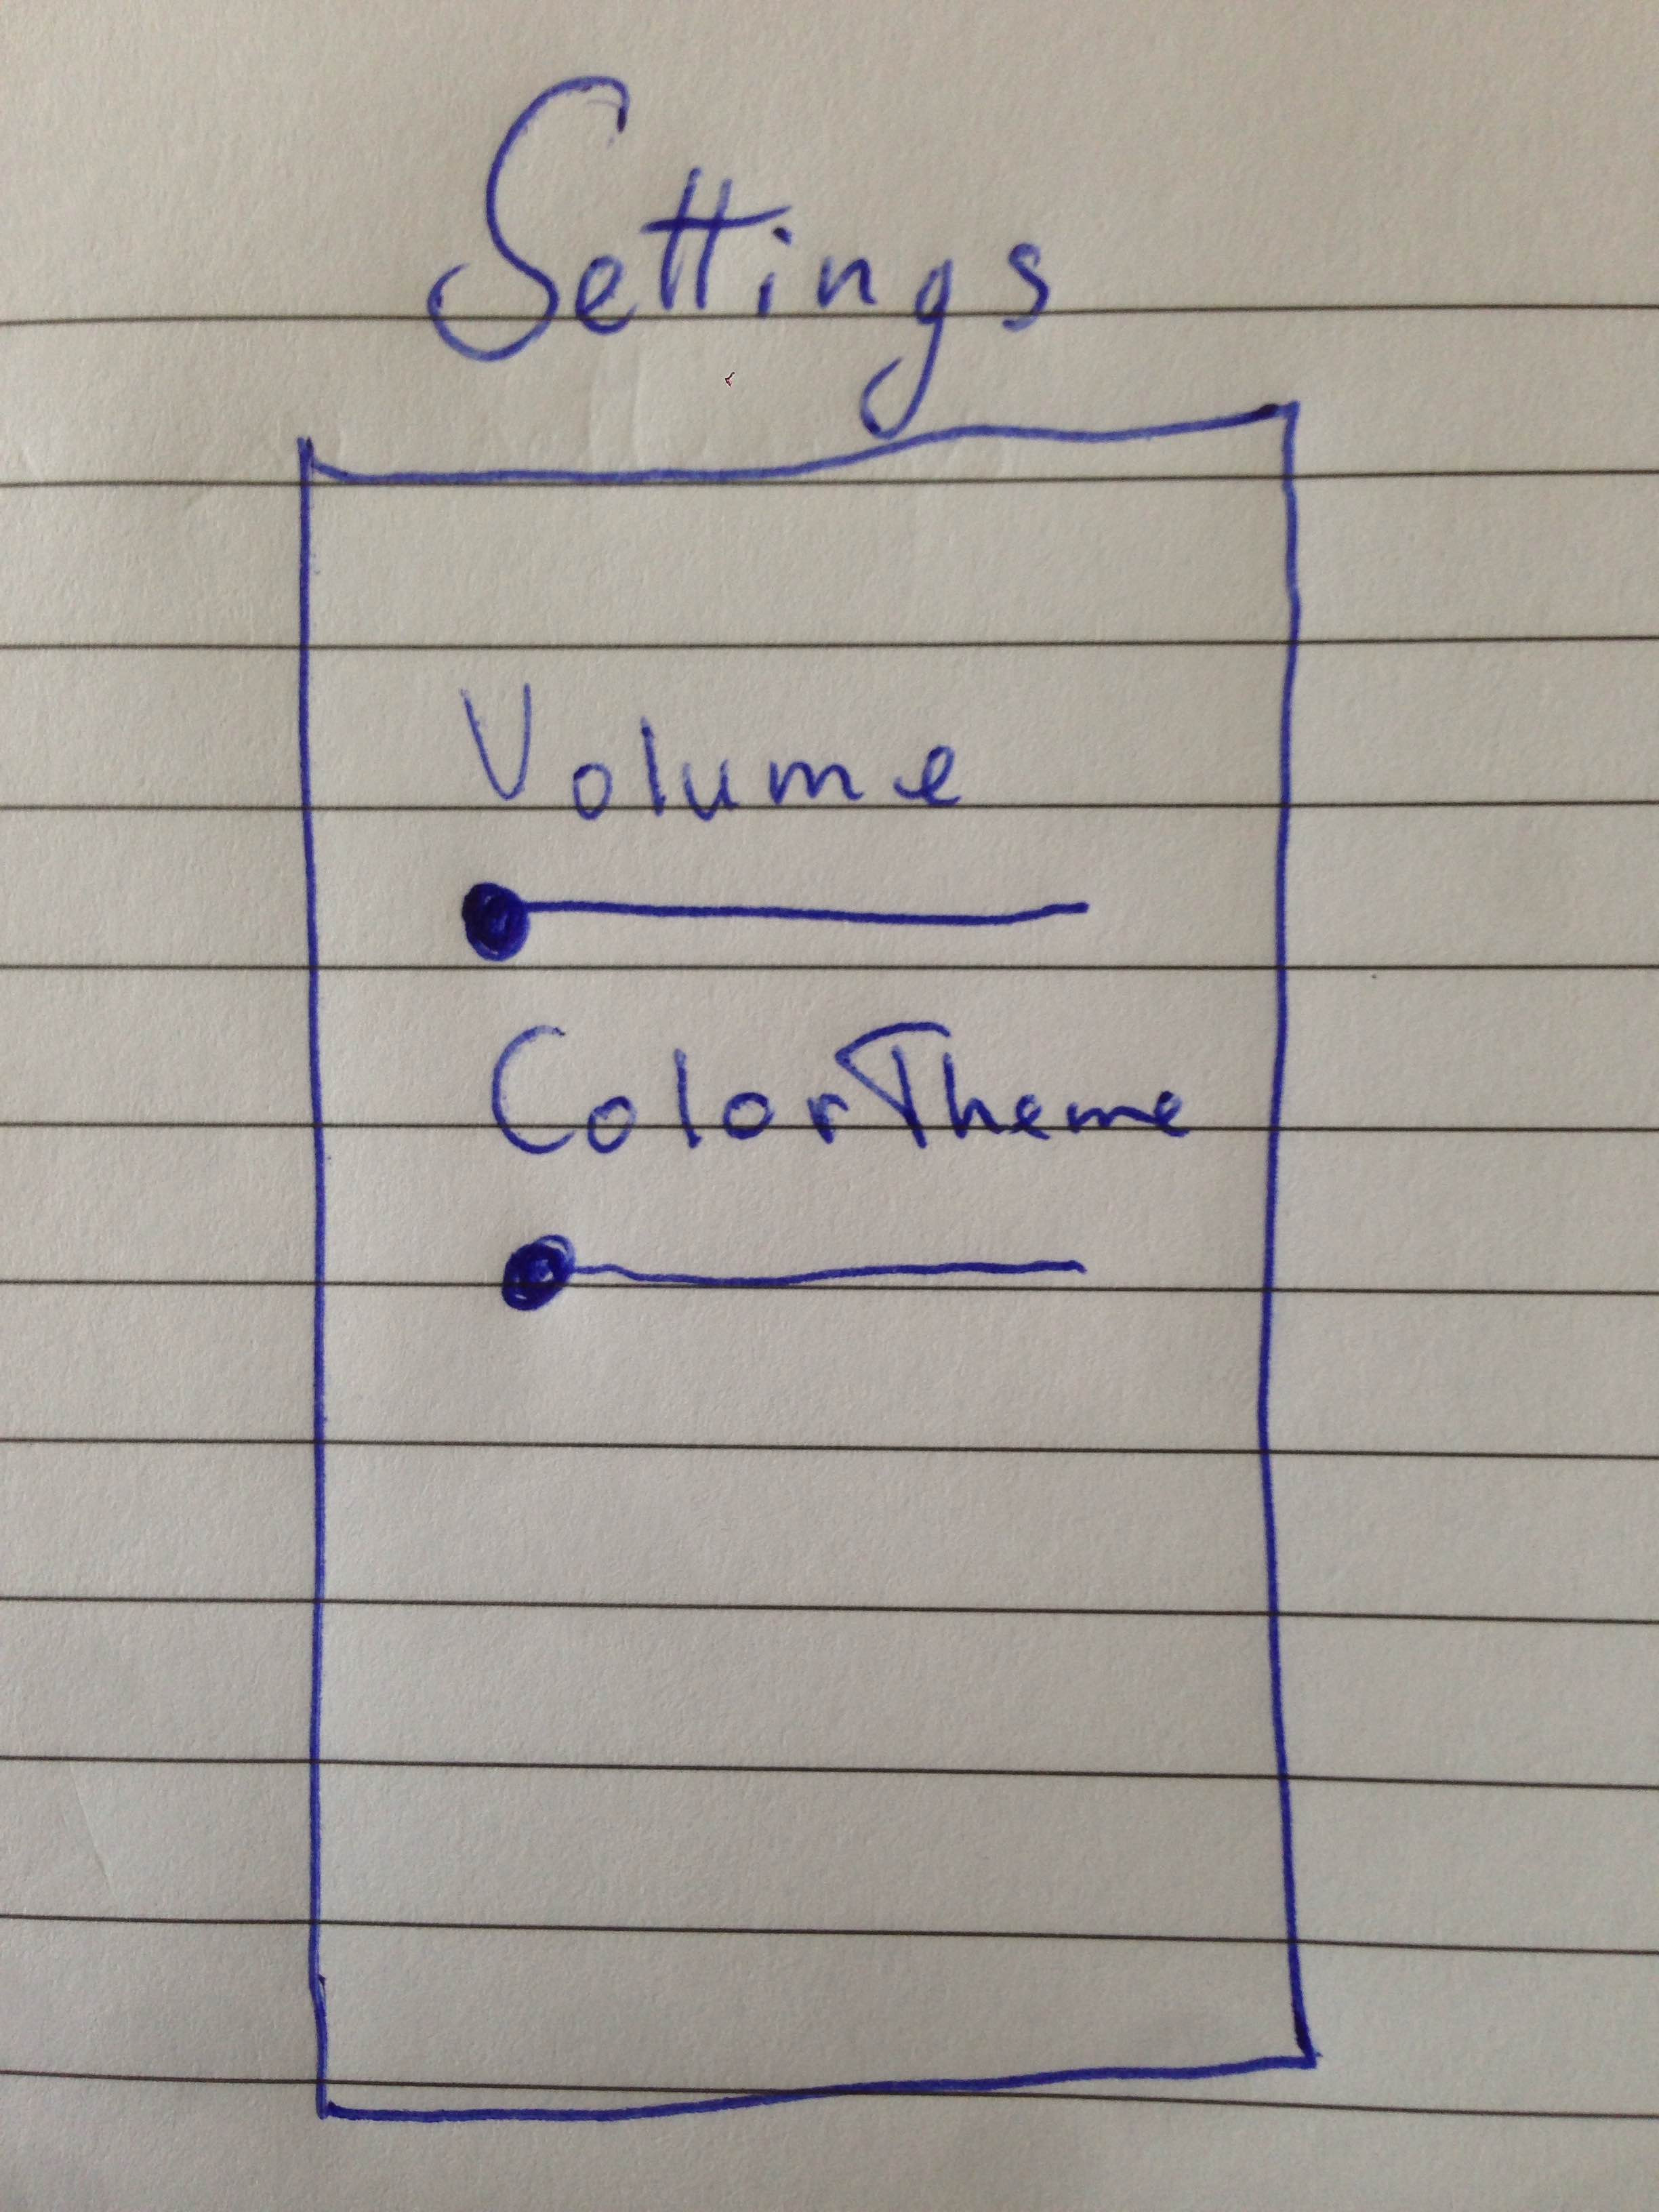 Settings
Volume
ColorTheme